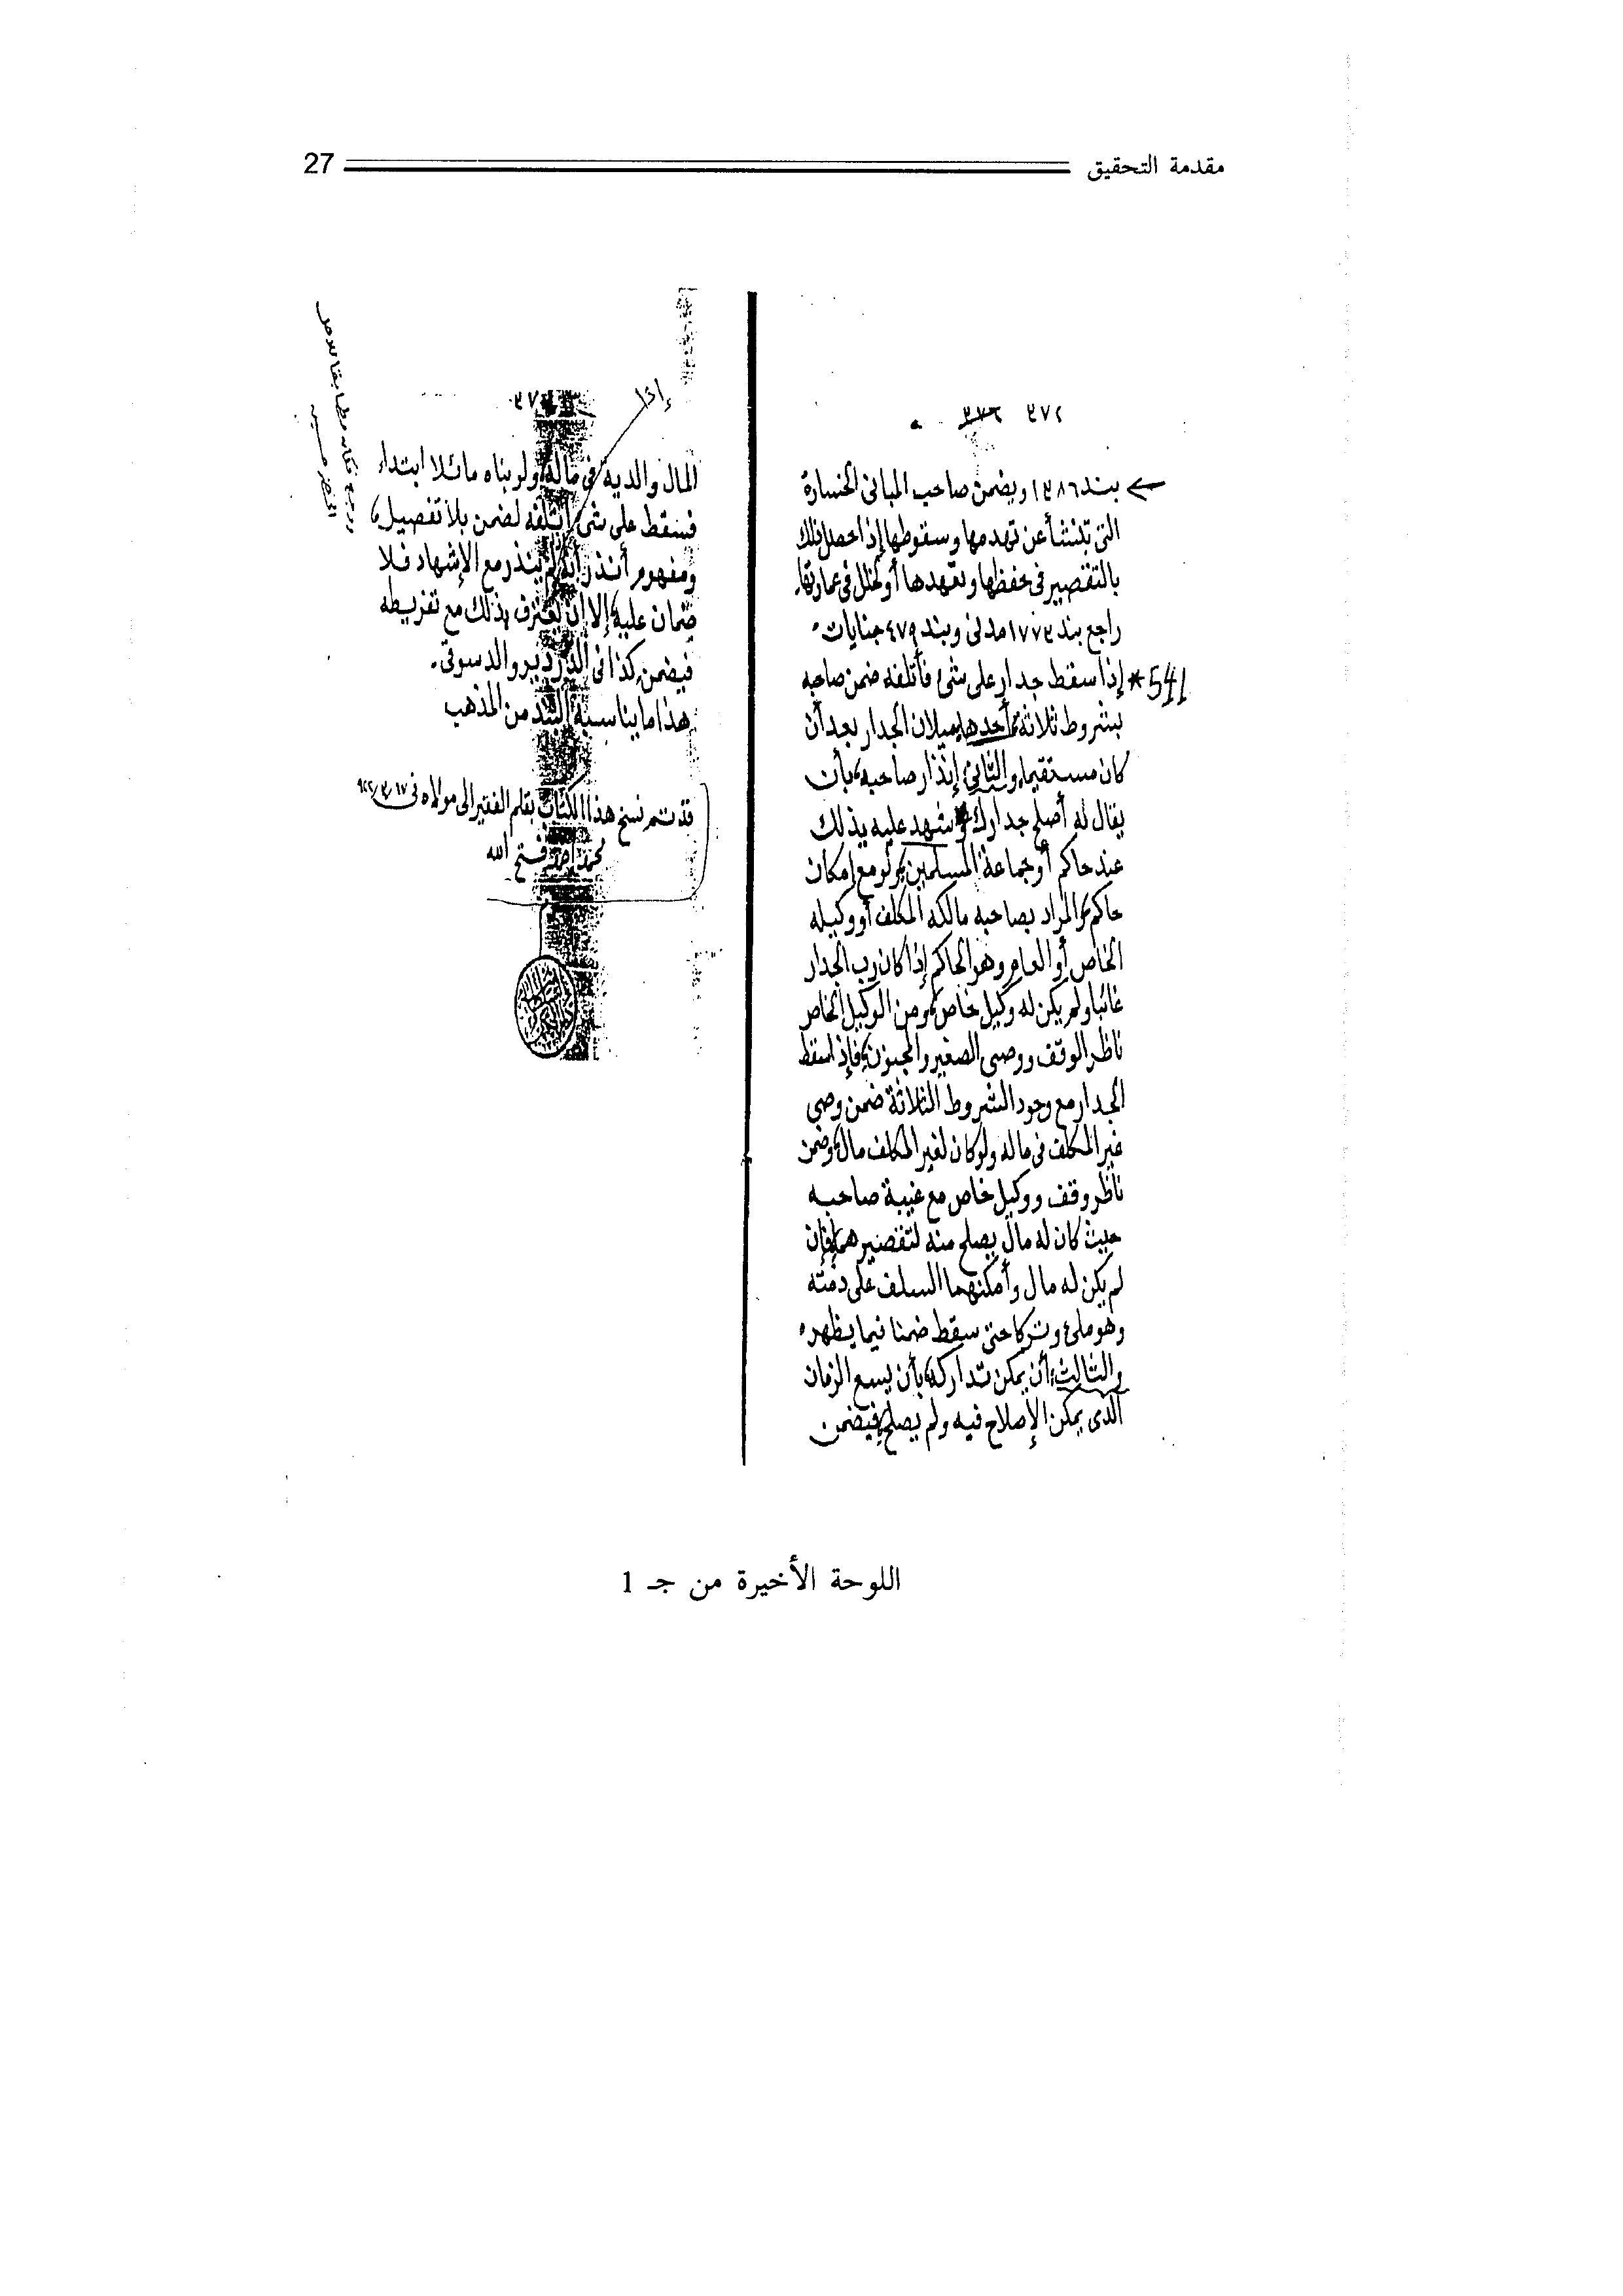 مقدمة التحقيق 27
٣٧٢
بند ١٣٨٦ ويضمن صاحب المبانى الخسارة
التى تنشأ عن تهدمها وسقوطها إذا حصل ذلك
بالتقصير فى حفظها وتعهدها أو لخلل فى عمارتها.
راجع بند ١٧٧٣ مدنى وبند ٤٧٩ جنايات.
541 * إذا سقط جدار على شىء فأتلفه ضمن صاحبه
بشروط ثلاثة، أحدها ميلان الجدار بعد أن
كان مستقيما، والثانى إنذار صاحبه، بأن
يقال له أصلح جدارك ويشهد عليه بذلك
عند حاكم أو جماعة المسلمين ولو مع إمكان
حاكم، والمراد بصاحبه مالكه المكلف أو وكيله
الخاص أو العام وهو الحاكم إذا كان رب الجدار
غائبا ولم يكن له وكيل خاص، ومن الوكيل الخاص
ناظر الوقف ووصى الصغير والمجنون، فإذا سقط
الجدار مع وجود الشروط الثلاثة ضمن وصى
غير المكلف فى ماله ولو كان لغير المكلف مال، وضمن
ناظر وقف ووكيل خاص مع غيبة صاحبه
حيث كان له مال يصلح منه لتقصيرهما، فإن
لم يكن له مال وأمكنهما السلف على ذمته
وهو ملىء وتركا حتى سقط ضمنا فيما يظهر.
والثالث، أن يمكن تداركه، بأن يسع الزمان
الذى يمكن الإصلاح فيه ولم يصلح، فيضمن
إذا
المال والدية فى ماله، ولو بناه مائلا ابتداء
فسقط على شىء أتلفه لضمن بلا تفصيل،
ومفهوم أنذر أنه لم ينذر مع الإشهاد فلا
ضمان عليه، إلا أن يعترف بذلك مع تفريطه
فيضمن، كذا فى الدردير والدسوقى.
هذا ما يناسبه البند من المذهب
قد تم نسخ هذا الكتاب بقلم الفقير إلى مولاه فى
محمد أحمد فتح الله
اللوحة الأخيرة من جـ 1